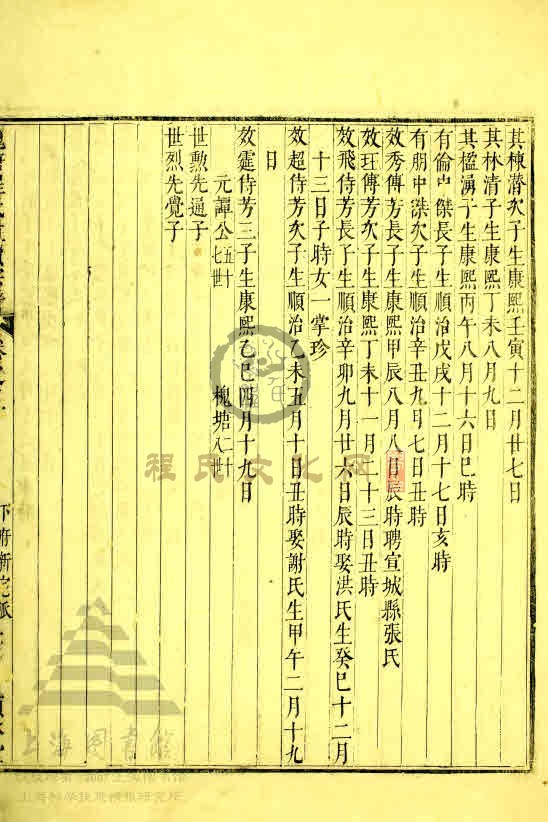 其棟潛次子生康熙壬寅十二月廿七日
其林清子生康熙丁未八月九日
其楹湧子生康熙丙午八月十六日巳時
有倫中傑長子生順治戊戌十二月十七日亥時
有朋中傑次子生順治辛丑九月七日丑時
效秀傅芳長子生康熙甲辰八月八日辰時聘宣城縣張氏
效玨傅芳次子生康熙丁未十一月二十三日丑時
效飛侍芳長子生順治辛卯九月廿六日辰時娶洪氏生癸巳十二月
十三日子時女一掌珍
效超侍芳次子生順治乙未五月十日丑時娶謝氏生甲午二月十九
日
效霆侍芳三子生康熙乙巳四月十九日
元譚公五十七世 槐塘八十世
世勲先通子
世烈先覺子
下府新宅派
程氏文化网
上海图書館